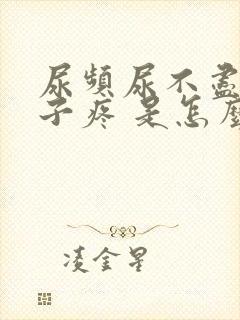 尿頻尿不盡
子疼 是怎麼
凌金星